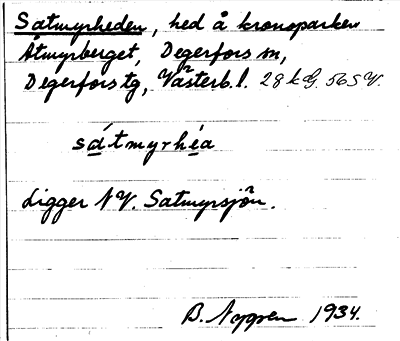 Satmyrheden, hed å kronoparken
Åtmyrberget, Degerfors sn,
Degerfors tg, Västerb. l. 28 k G. 56 S V.
sátmyrhéa
Ligger NV. Satmyrsjön.
B. Nygren 1934.